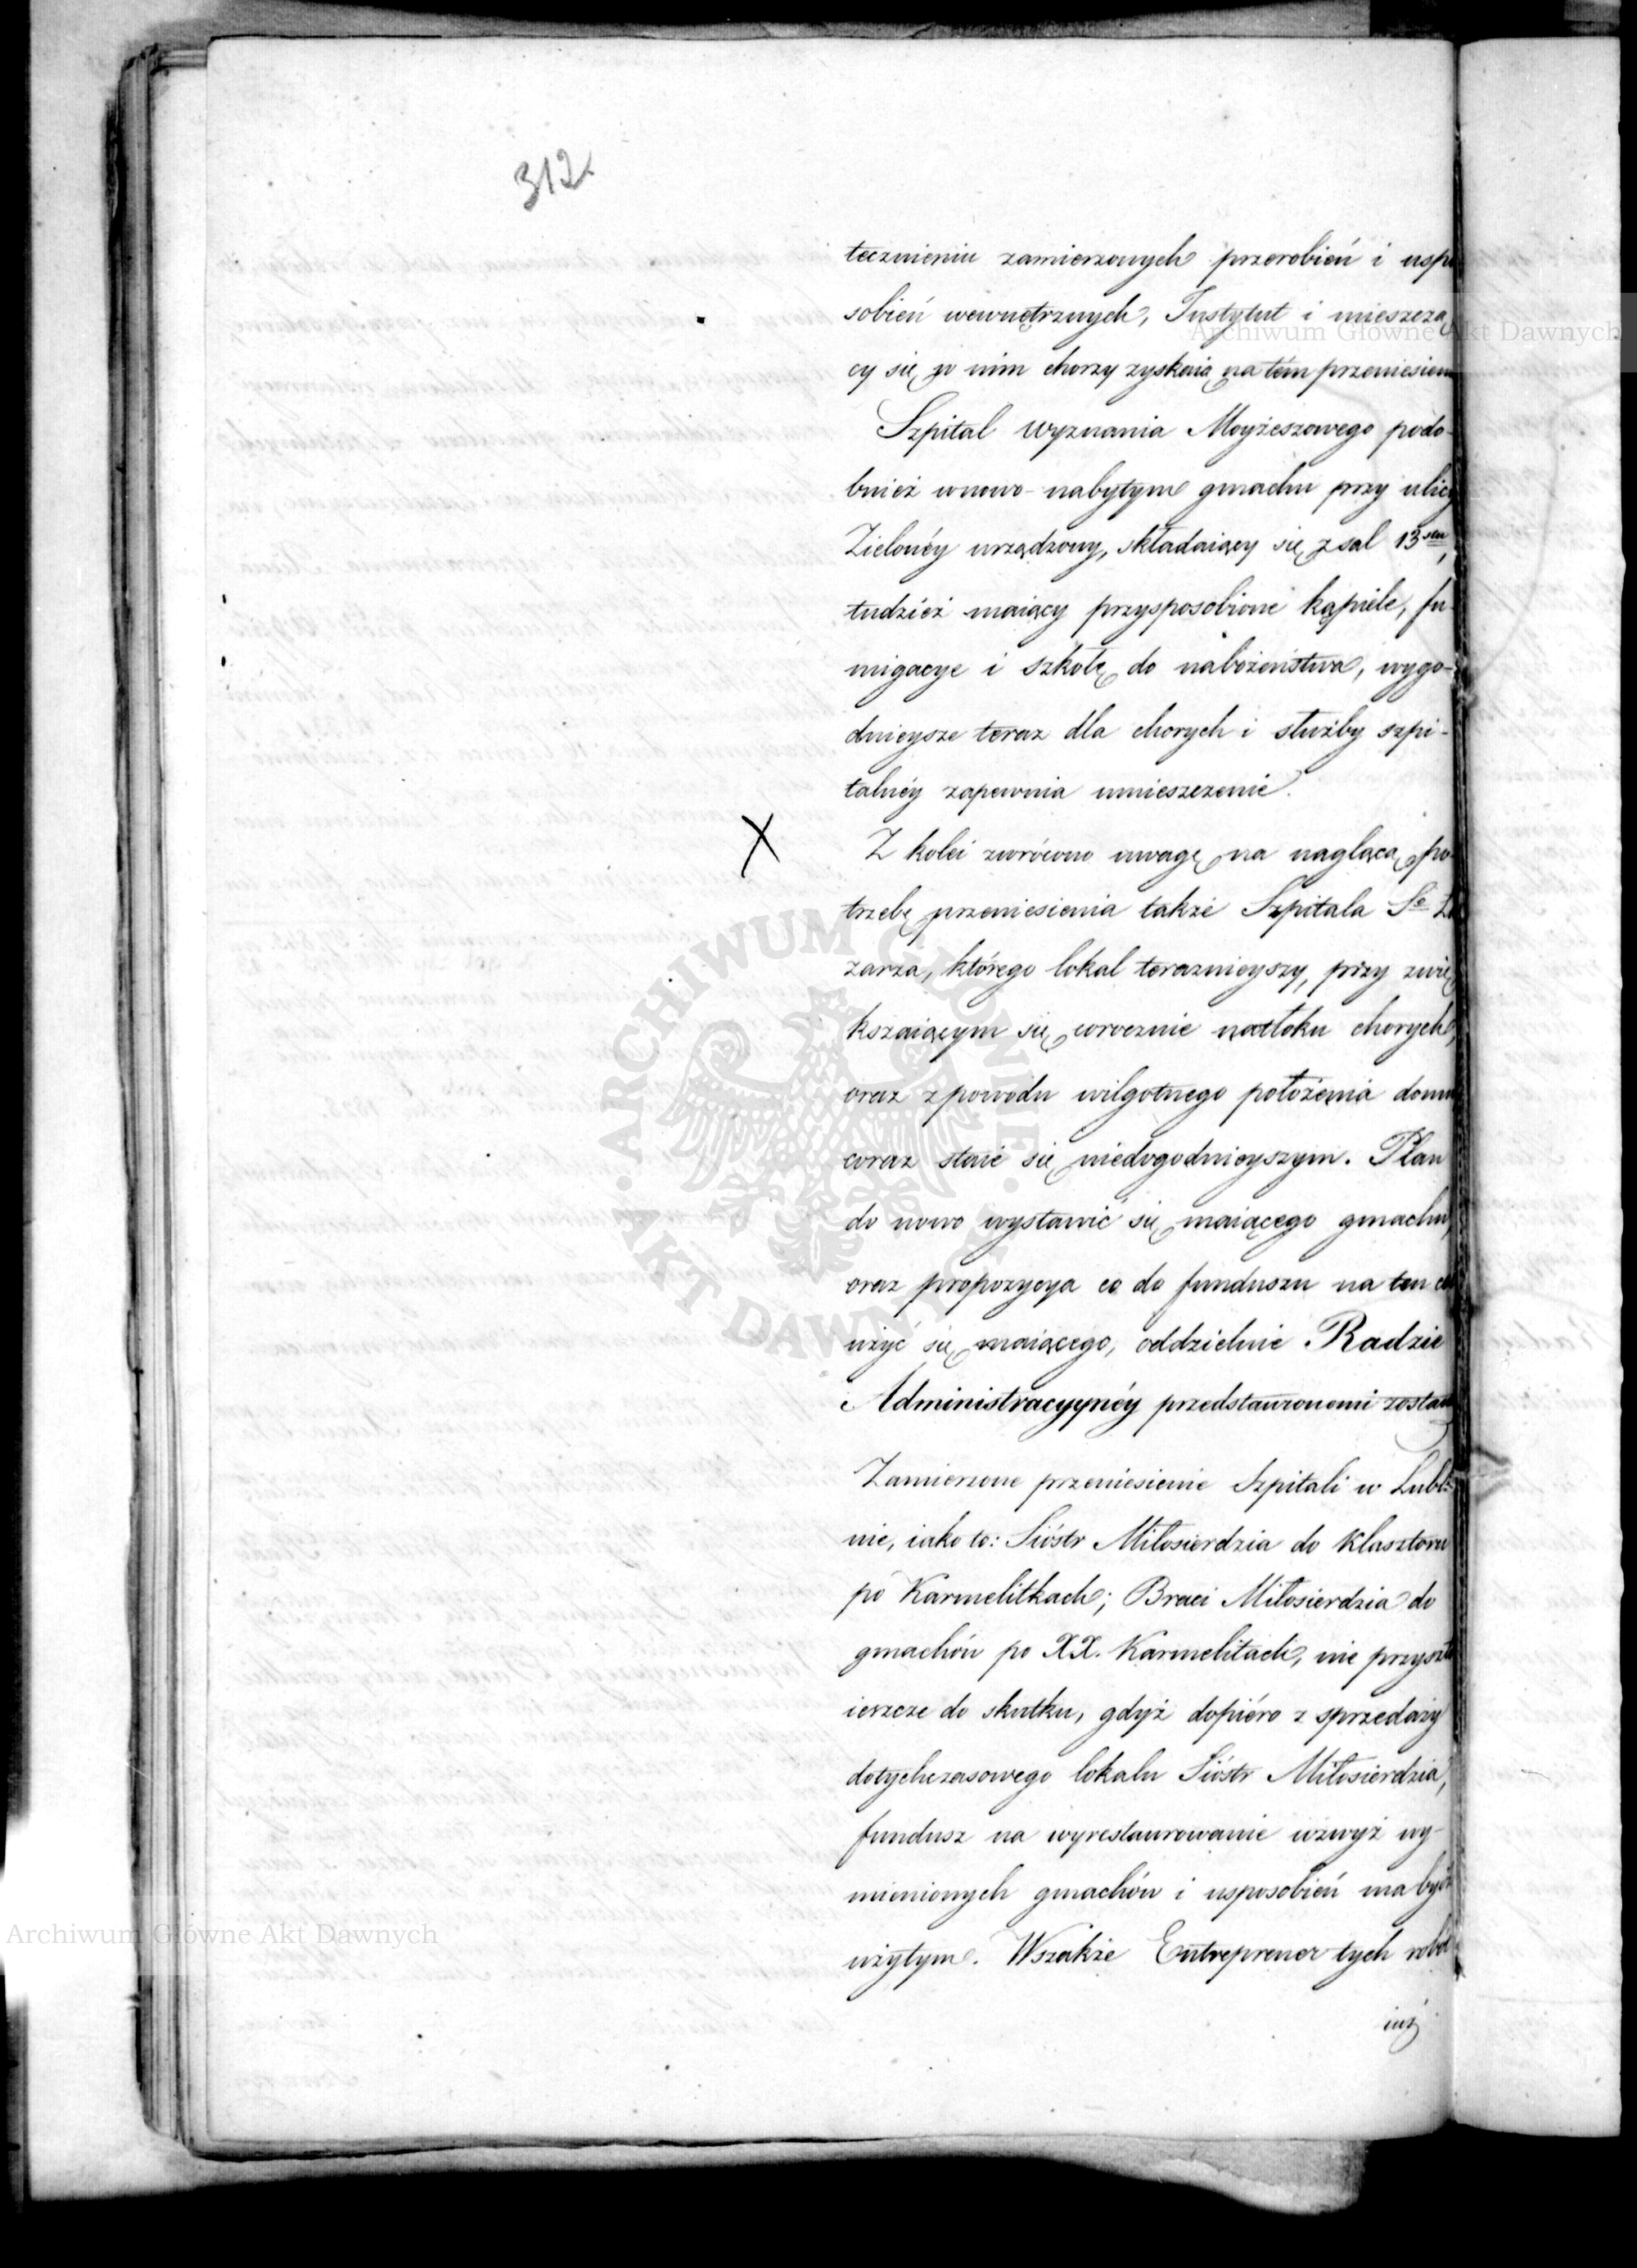 312
tecznieniu zamierzonych przerobień i uspo
sobień wewnętrznych, Instytut i mieszczą
cy się w nim chorzy zyskaią na tém przeniesieniu
Szpital wyznania Moyżeszowego podo-
bnież w nowo-nabytym gmachu przy ulicy
Zielonéy urządzony, składaiący się z sal 13stu,
tudzież maiący przysposobione kąpiele, fu-
migacye i szkołę do nabożeństwa, wygo-
dnieysze teraz dla chorych i służby szpi-
talnéy zapewnia umieszczenie.
X
Z kolei zwrócono uwagę na naglącą po-
trzebę przeniesienia także Szpitala Sgo Ła
zarza, którego lokal teraznieyszy, przy zwię
kszaiącym się corocznie natłoku chorych,
oraz z powodu wilgotnego położenia domu
coraz staie się niedogodnieyszym. Plan
do nowo wystawić się maiącego gmachu,
oraz propozycya co do funduszu na ten cel
użyć się maiącego, oddzielnie Radzie
Administracyynéy przedstawionemi zostaną
Zamierzone przeniesienie Szpitali w Lubli-
nie, iako to: Sióstr Miłosierdzia do klasztoru
po Karmelitkach; Braci Miłosierdzia do
gmachów po XX. Karmelitach, nie przyszło
ieszcze do skutku, gdyż dopiéro z sprzedaży
dotychczasowego lokalu Sióstr Miłosierdzia,
fundusz na wyrestaurowanie wzwyż wy-
mienionych gmachów i usposobień ma być
użytym. Wszakże Entreprener tych robót
iuż
Archiwum Główne Akt Dawnych
Archiwum Główne Akt Dawnych
ARCHIWUM GŁÓWNE AKT DAWNYCH